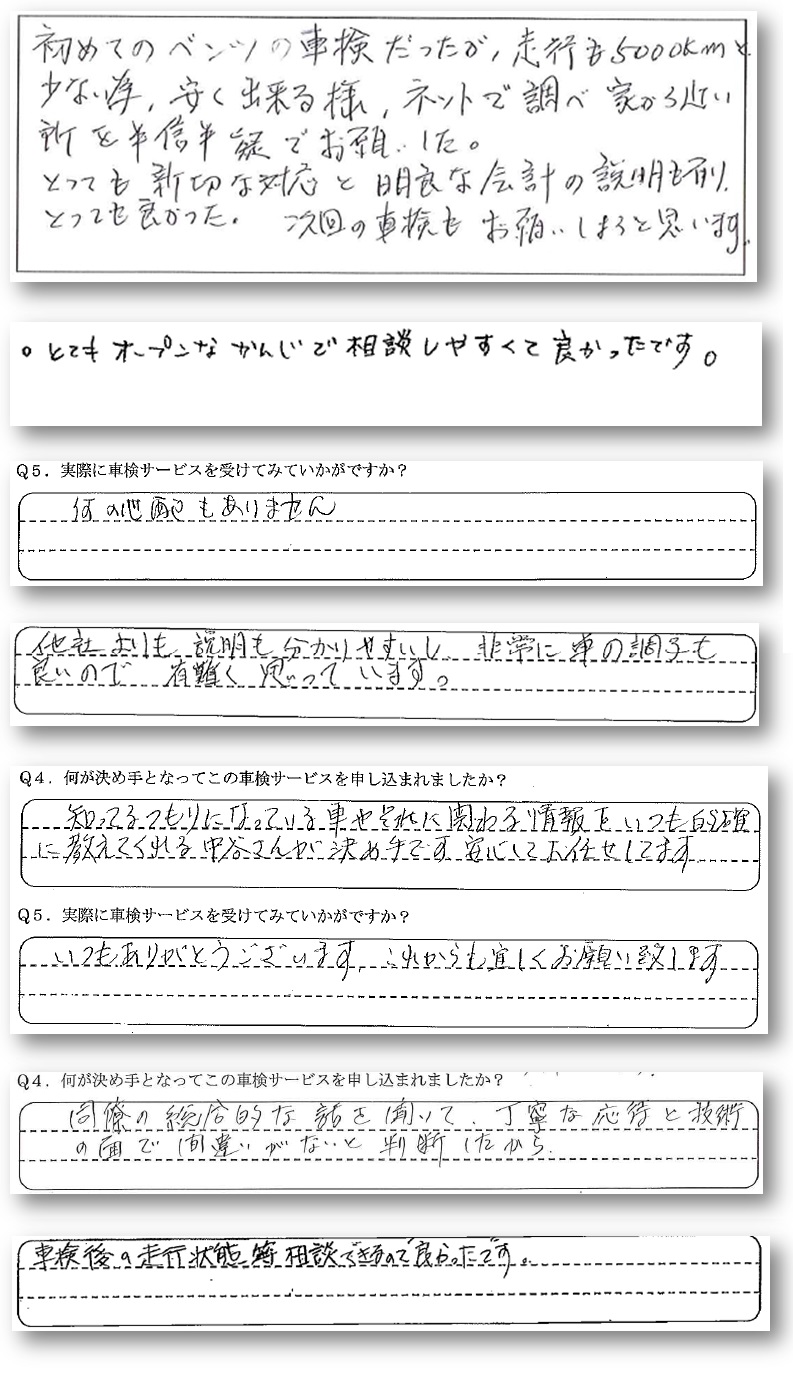 初めてのベンツの車検だったが、走行も5000kmと
少ない為、安く出来る様、ネットで調べ家から近い
所を半信半疑でお願いした。
とっても親切な対応と明良な会計の説明も有り、
とっても良かった。 次回の車検もお願いしようと思います。
。とてもオープンなかんじで相談しやすくて良かったです。
Q5．実際に車検サービスを受けてみていかがですか？
何の心配もありません
他社よりも説明も分かりやすいし、非常に車の調子も
良いので 有難く思っています。
Q4．何が決め手となってこの車検サービスを申し込まれましたか？
知ってるつもりになっている車やそれに関わる情報をいつも的確
に教えてくれる中谷さんが決め手です 安心してお任せしてます
Q5．実際に車検サービスを受けてみていかがですか？
いつもありがとうございます。これからも宜しくお願い致します
Q4．何が決め手となってこの車検サービスを申し込まれましたか？
同僚の総合的な話を聞いて、丁寧な応待と技術
の面で間違いがないと判断したから.
車検後の走行状態等相談できるので良かったです。